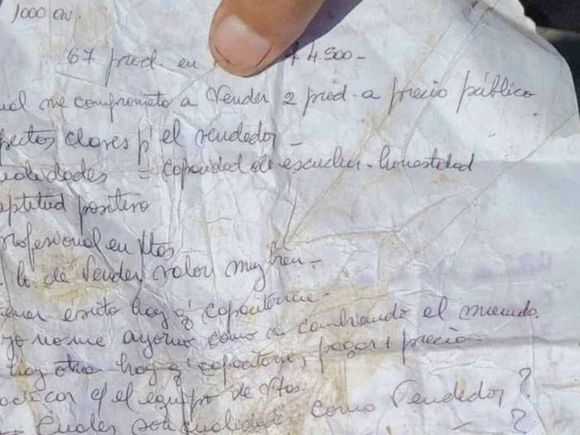 1000 av.
67 prod. en $ 4.500-
ual me comprometo a vender 2 prod. a precio público
pectos claves p' el vendedor -
ualidades = capacidad de escuchar - honestidad
aptitud positivo
rofesional en Vtas
lo de Vender valor muy bien -
ener exito hay q' capacitarse -
yo no me ayorno como va cambiando el mercado
hay otra hay q' capacitarse, pagar 1 precio -
car el equipo de Vtas.
cuales son cualidades como Vendedor ?
?